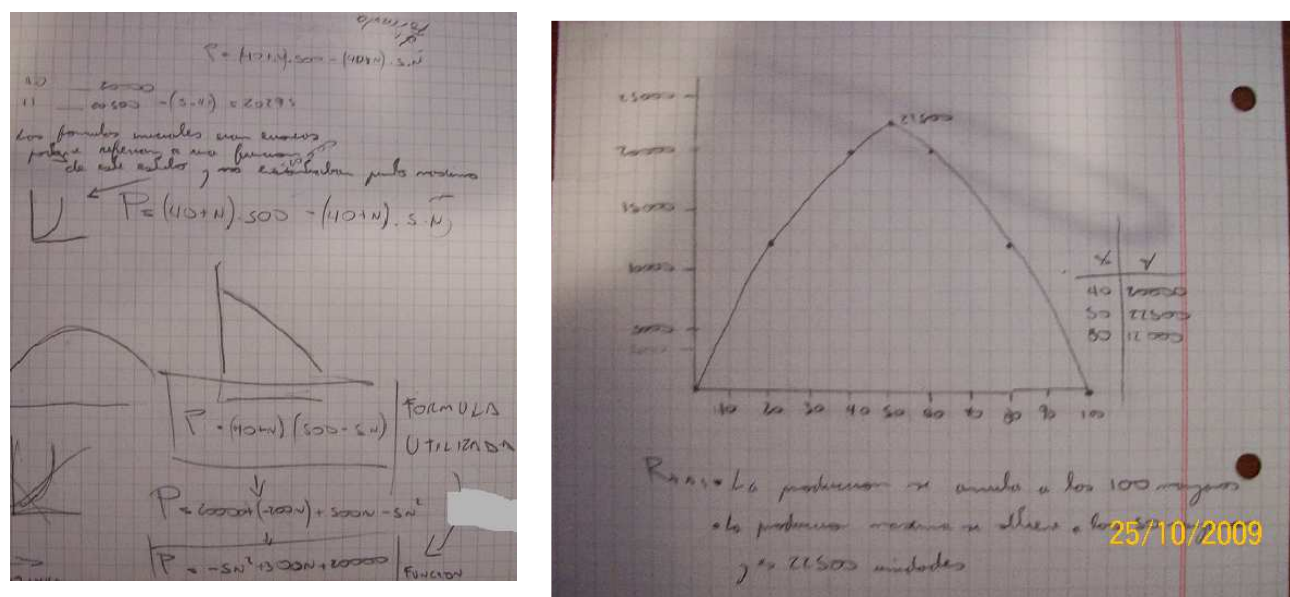 formula
P = (40+N).500 - (40+N).5.N
40 20000
41 20500 - (5.41) = 20295
Las formulas iniciales eran
porque referian a una funcion
de este estilo y no punto maximo
P = (40+N).500 - (40+N).5.N
P = (40+N) (500 - 5N)
FORMULA
UTILIZADA
P = 20000+(-200N)+500N-5N²
P = -5N²+300N+20000
FUNCION
25000
22500
20000
15000
10000
5000
10 20 30 40 50 60 80 90 100
X Y
40 20000
50 22500
80 12000
• La produccion se anula a los 100 manzanos
• La produccion maxima se obtiene a los 50
y es 22500 unidades
25/10/2009